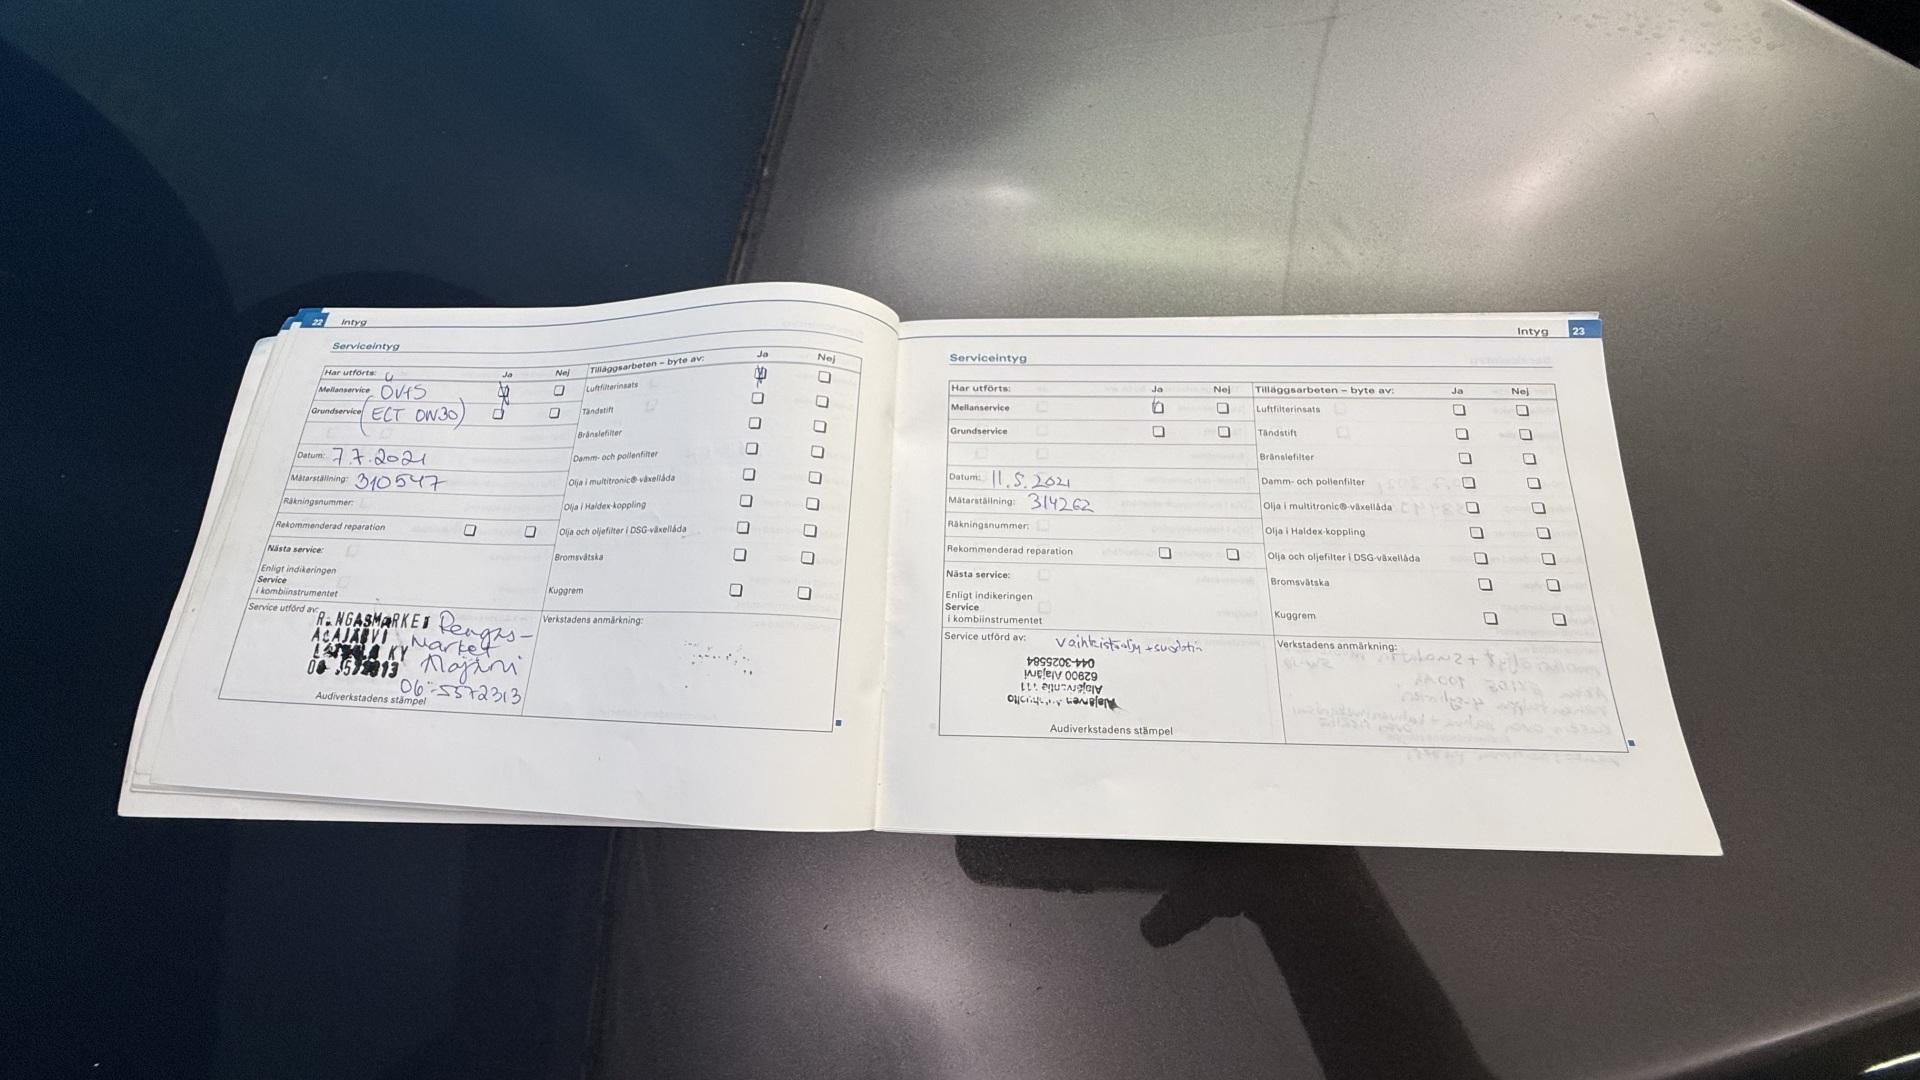 22 Intyg
Serviceintyg
Har utförts: Ja Nej
Mellanservice ÖV+S
Grundservice (ECT 0W30)
Datum: 7.7.2021
Mätarställning: 310547
Räkningsnummer:
Rekommenderad reparation
Nästa service:
Enligt indikeringen
Service
i kombiinstrumentet
Service utförd av:
Rengas-
Market
06-5572313
Audiverkstadens stämpel
Tilläggsarbeten – byte av: Ja Nej
Luftfilterinsats
Tändstift
Bränslefilter
Damm- och pollenfilter
Olja i multitronic®-växellåda
Olja i Haldex-koppling
Olja och oljefilter i DSG-växellåda
Bromsvätska
Kuggrem
Verkstadens anmärkning:
Intyg 23
Serviceintyg
Har utförts: Ja Nej
Mellanservice
Grundservice
Datum: 11.5.2021
Mätarställning: 314262
Räkningsnummer:
Rekommenderad reparation
Nästa service:
Enligt indikeringen
Service
i kombiinstrumentet
Service utförd av:
Alajärven
Alajärventie 111
62900 Alajärvi
044-3025584
Audiverkstadens stämpel
Tilläggsarbeten – byte av: Ja Nej
Luftfilterinsats
Tändstift
Bränslefilter
Damm- och pollenfilter
Olja i multitronic®-växellåda
Olja i Haldex-koppling
Olja och oljefilter i DSG-växellåda
Bromsvätska
Kuggrem
Verkstadens anmärkning: